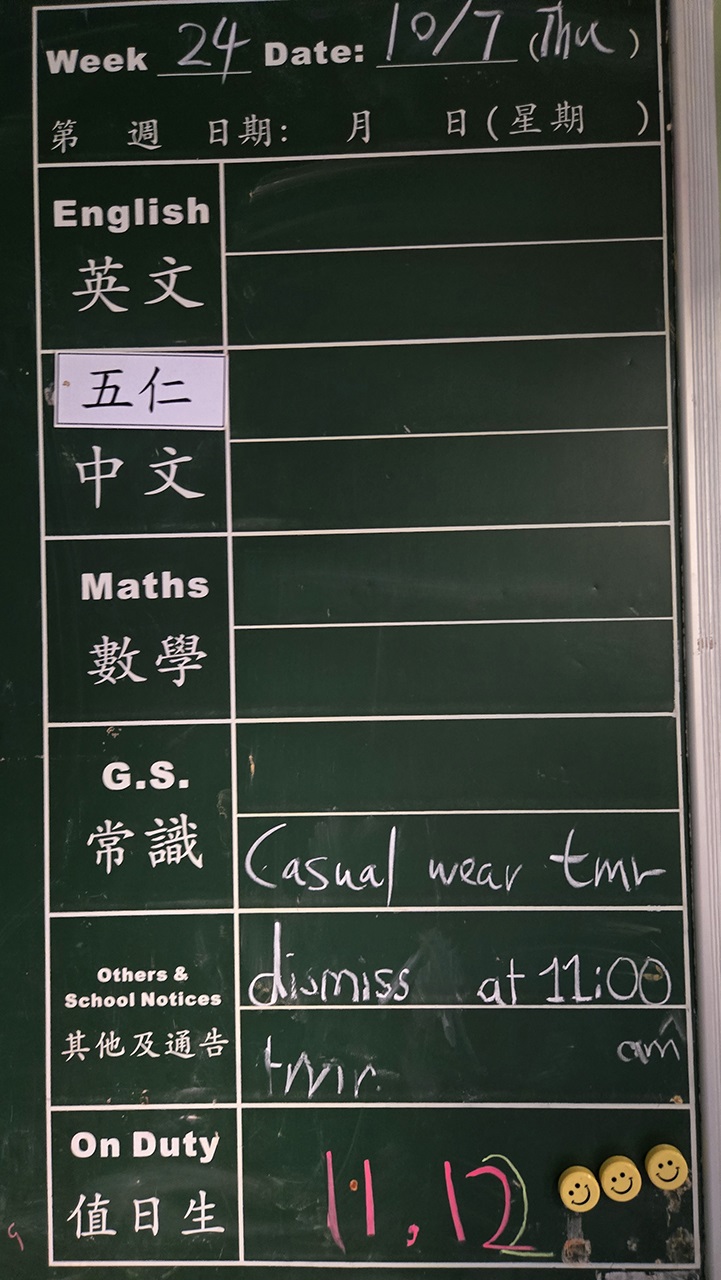 Week 24 Date: 10/7 (Thu)
第 週 日期: 月 日(星期 )
English
英文
五仁
中文
Maths
數學
G.S.
常識
Casual wear tmr
Others &
School Notices
其他及通告
dismiss at 11:00
am
tmr
On Duty
值日生
11, 12